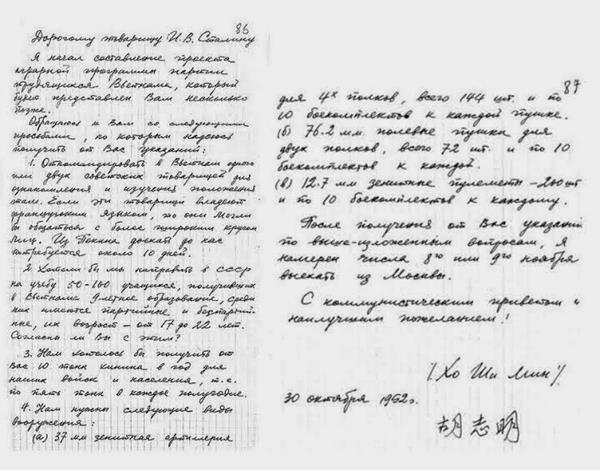 86
Дорогому товарищу И.В. Сталину
Я начал составление проекта
аграрной программы партии
трудящихся Вьетнама, который
будет представлен Вам несколько
позже.
Обращаюсь к Вам со следующими
просьбами, по которым надеюсь
получить от Вас указания:
1. Откомандировать в Вьетнам одного
или двух советских товарищей для
ознакомления и изучения положения
там. Если эти товарищи владеют
французским языком, то они могли
бы общаться с более широким кругом
лиц. Из Пекина доехать до нас
потребуется около 10 дней.
2. Хотели бы мы направить в СССР
на учебу 50-100 учащихся, получивших
в Вьетнаме 9-летнее образование, среди
них имеются партийные и беспартий-
ные, их возраст - от 17 до 22 лет.
Согласны ли Вы с этим?
3. Нам хотелось бы получить от
Вас 10 тонн хинина в год для
наших войск и населения, т.е.
по пять тонн в каждое полугодие.
4. Нам нужны следующие виды
вооружения:
(а) 37 мм зенитная артиллерия
87
для 4х полков, всего 144 шт. и по
10 боекомплектов к каждой пушке.
(б) 76.2 мм. полевые пушки для
двух полков, всего 72 шт. и по 10
боекомплектов к каждой.
(в) 12.7 мм зенитные пулеметы - 200 шт
и по 10 боекомплектов к каждому.
После получения от Вас указаний
по выше-изложенным вопросам, я
намерен числа 8го или 9го ноября
выехать из Москвы.
С коммунистическим приветом и
наилучшим пожеланием!
/Хо Ши Мин/.
30 октября 1952г.
胡志明